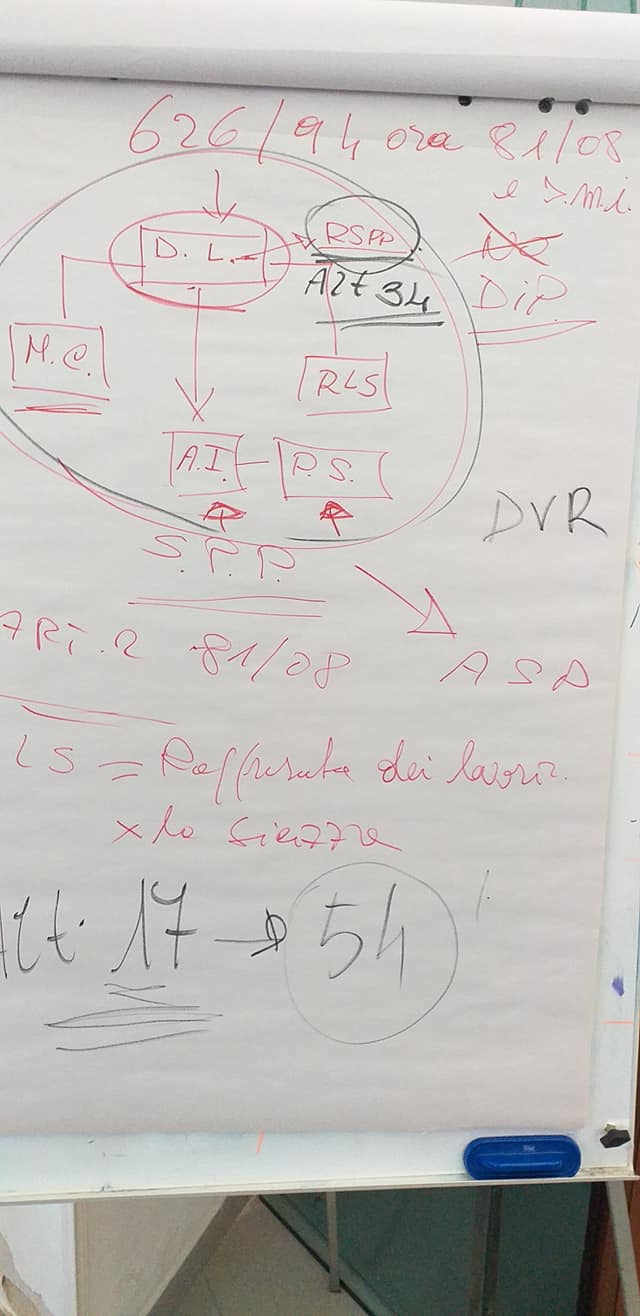 626/94 ora 81/08
e s.m.i.
D. L.
RSPP
Art 34
DiP.
M.C.
RLS
A.I.
P.S.
DVR
S.P.P.
ARt. 2 81/08
ASD
LS = dei
x la
Art. 17 → 54